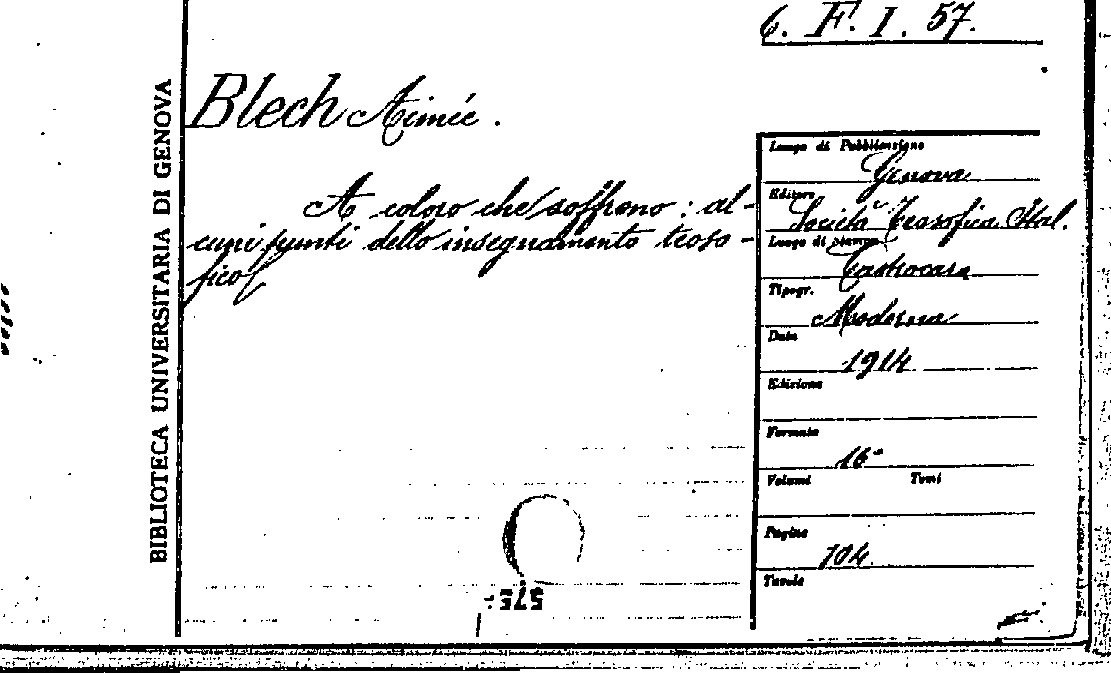 6. F. I. 57.
BIBLIOTECA UNIVERSITARIA DI GENOVA
Blech Aimée.
A coloro che soffrono: al-
cuni punti dello insegnamento teoso-
fico
Luogo di Pubblicazione
Genova
Editore
Società Teosofica Ital.
Luogo di stampa
Castrocaro
Tipogr.
Moderna
Data
1914
Edizione
Formato
16°
Volumi Tomi
Pagine
104
Tavole